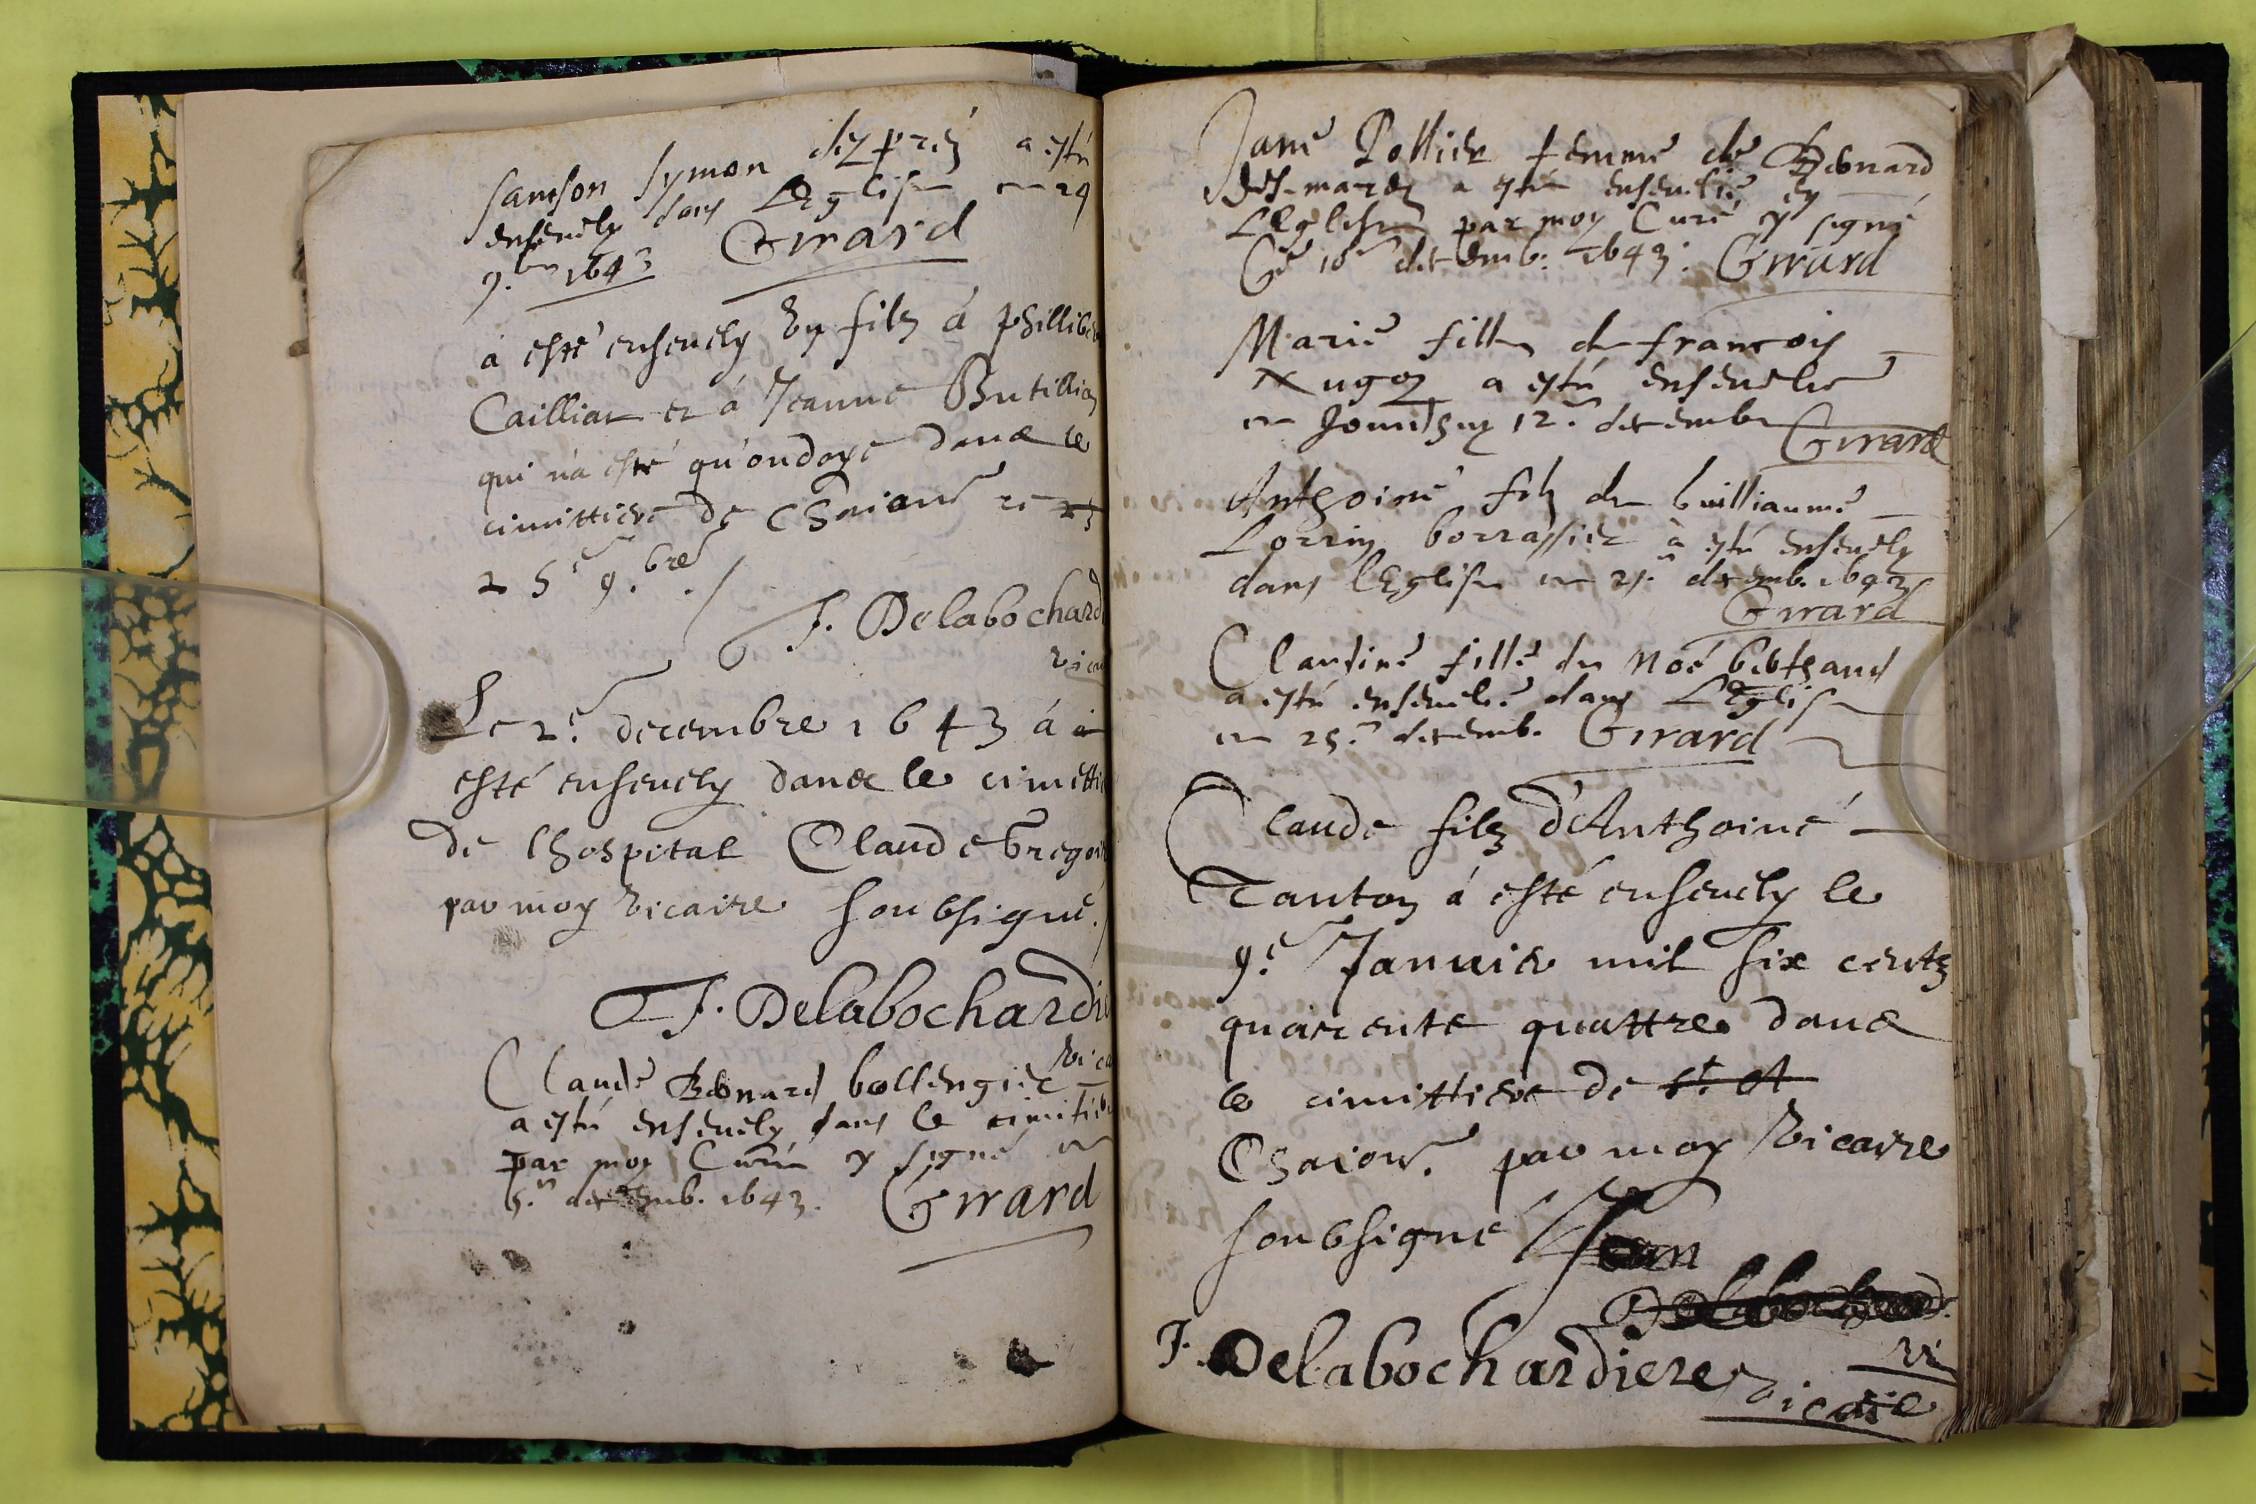 Samson Symon desprez a esté
ensevely dans L'Eglise ce 29
9.bre 1643 Girard
à esté ensevely un filz à Phillibe
Cailliat et à Jeanne Butillion
qui n'a esté qu'ondoyé dans le
cimittiere de ce
25e 9.bre ./
J. Delabochard
vica
Le 2e decembre 1643 à
esté ensevely dans le cimetti
de lhospital Claude Gregoi
par moy vicaire soubsigné./
J. Delabochardie
vica
Claude Bonard bollengier
a esté ensevely dans le cimitie
par moy Curé sy signé ce
5.e decemb. 1643. Girard
Jane Pollier femme de Bonard
des-marez a esté ensevelie en
L'Eglise par moy Curé sy signé
Ce 10e decemb. 1643. Girard
Marie fille de francois
a esté ensevelie
ce Jourdhuy 12.e decembre Girard
Anthoine filz de Guilliaume
Lorrin borrassier a esté ensevely
dans l'Eglise ce 21.e decemb. 1643
Girard
Claudine fille de Noé berthaud
a esté ensevelie dans L'Eglise
ce 25.e decemb. Girard
Claude filz d'Anthoine
Tanton à esté ensevely le
9.e Janvier mil six centz
quarente quattre dans
le cimittiere de St. A
par moy vicaire
soubsigné Jean
Delabochard
vi
J. Delabochardiere vicaire